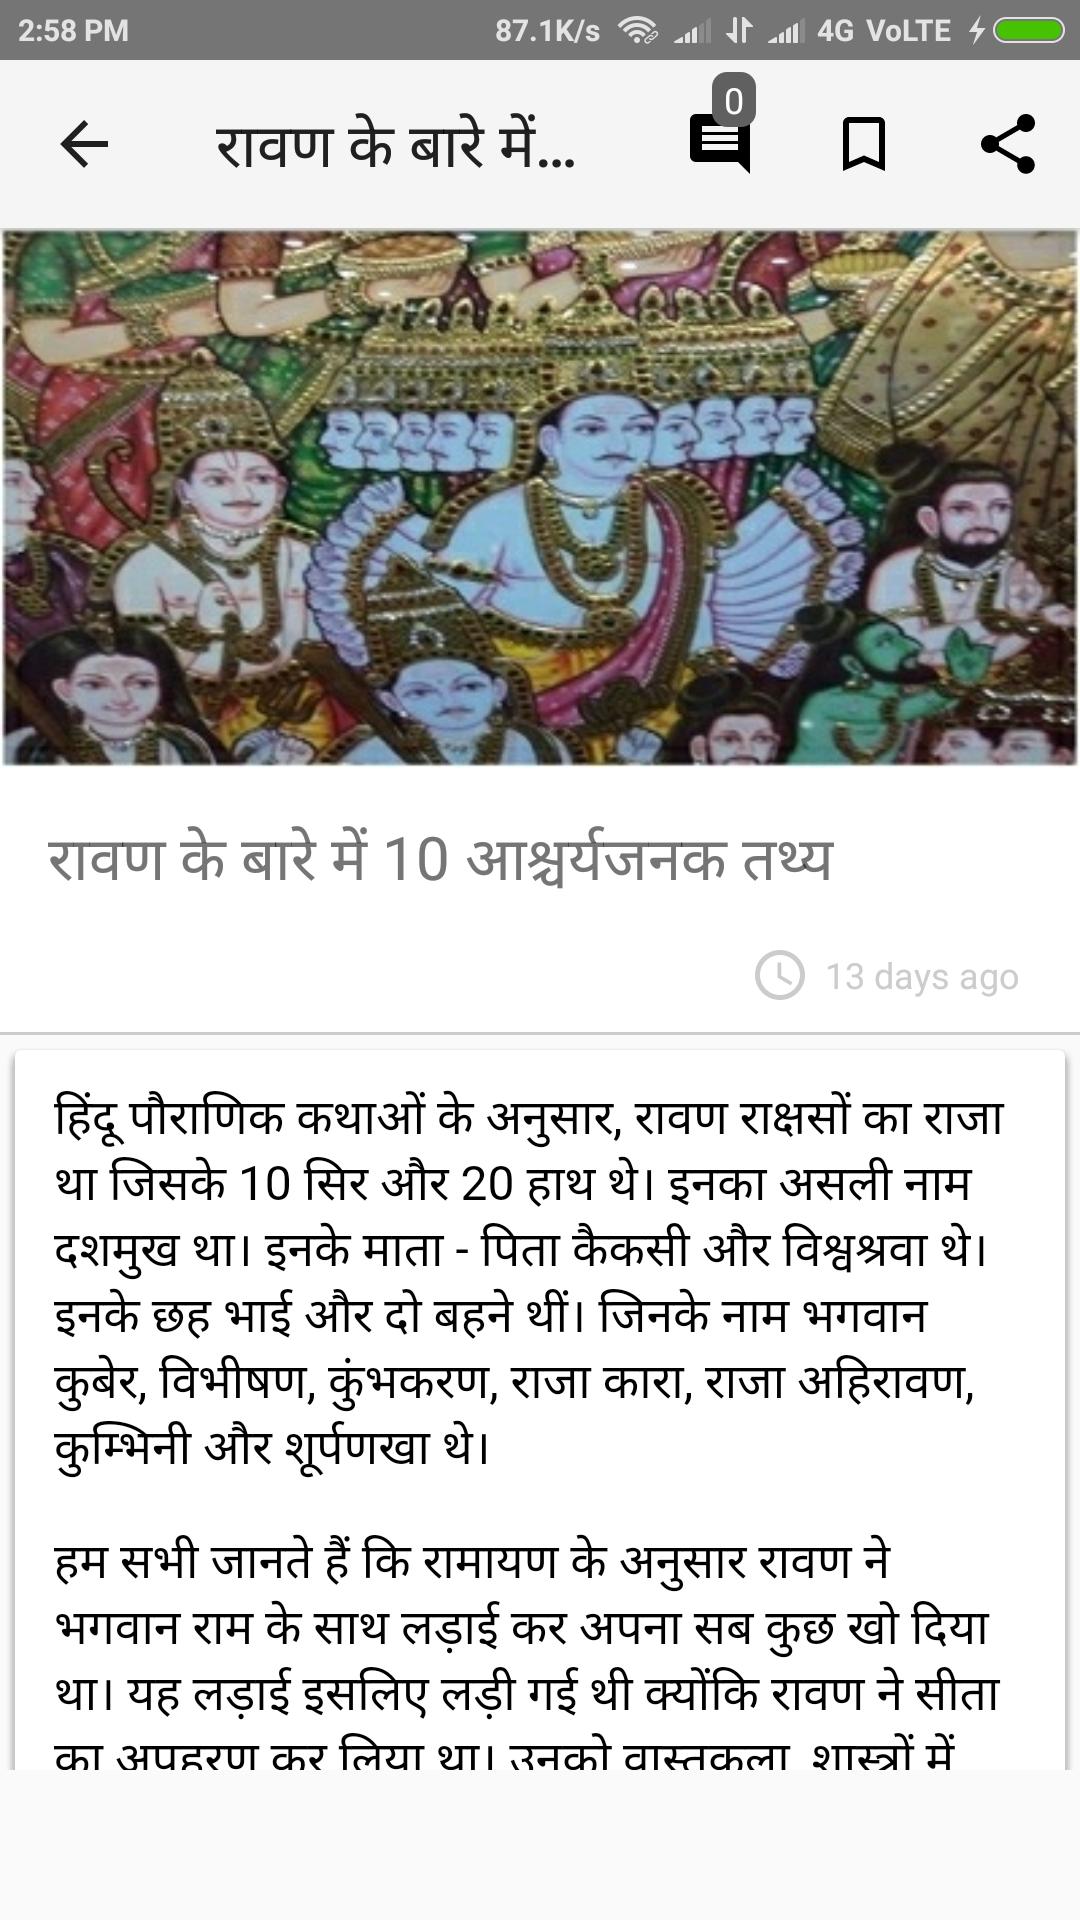 2:58 PM 87.1K/s 4G VoLTE
0
रावण के बारे में...
रावण के बारे में 10 आश्चर्यजनक तथ्य
13 days ago
हिंदू पौराणिक कथाओं के अनुसार, रावण राक्षसों का राजा
था जिसके 10 सिर और 20 हाथ थे। इनका असली नाम
दशमुख था। इनके माता - पिता कैकसी और विश्वश्रवा थे।
इनके छह भाई और दो बहने थीं। जिनके नाम भगवान
कुबेर, विभीषण, कुंभकरण, राजा कारा, राजा अहिरावण,
कुम्भिनी और शूर्पणखा थे।
हम सभी जानते हैं कि रामायण के अनुसार रावण ने
भगवान राम के साथ लड़ाई कर अपना सब कुछ खो दिया
था। यह लड़ाई इसलिए लड़ी गई थी क्योंकि रावण ने सीता
का अपहरण कर लिया था। उनको वास्तुकला, शास्त्रों में